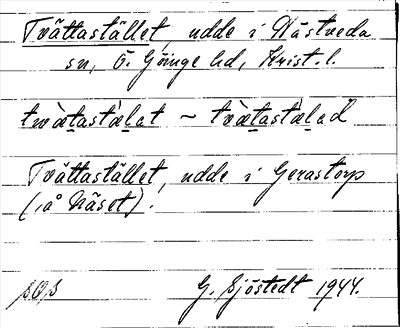 Tvättastället, udde i Nästveda
sn, Ö. Göinge hd, Krist. l.
twætastælat – tvætastælad
Tvättastället, udde i Gerastorp
(på Näset).
G. Sjöstedt 1944.